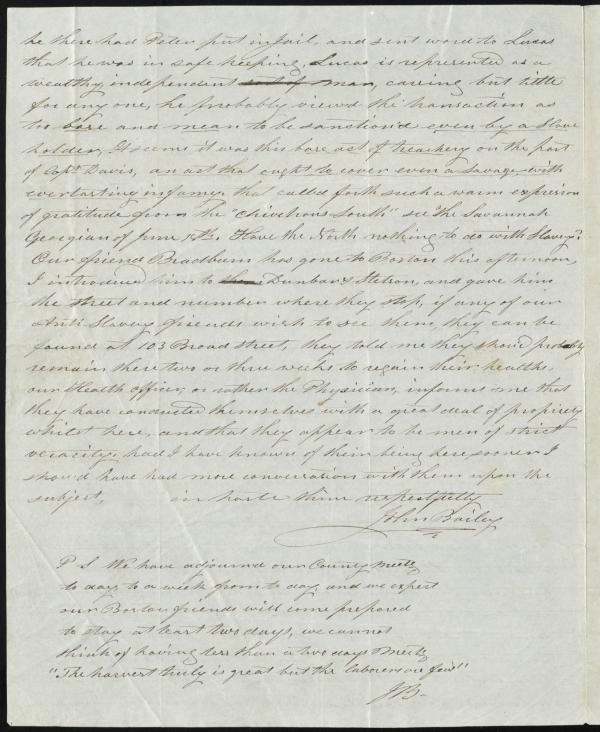 he there had Peter put in Jail, and sent word to Lucas
that he was in safe keeping, Lucas is represented as a
wealthy independent sort of man, caring but little
for any one, he probably view'd the transaction as
too base and mean to be sanction'd even by a Slave
holder, It seems it was this base act of treachery on the part
of Capt Davis, an act that ought to cover even a Savage with
everlasting infamy, that called forth such a warm expression
of gratitude from the "chivelrous South" see The Savannah
Georgian of June 15th. Have the North nothing to do with Slavery?
Our friend Bradburn has gone to Boston this afternoon,
I introduced him to Dunbar & Stetson, and gave him
the street and number where they stop, if any of our
Anti Slavery friends wish to see them, they can be
found at 103 Broad Street, they told me they should probably
remain there two or three weeks to regain their healths,
our Health officer, or rather the Physician, informs me that
they have conducted themselves with a great deal of propriety
whilst here, and that they appear to be men of strict
veracity, had I have known of them being here sooner I
should have had more conversation with them upon the
subject, in haste thine respectfully
John Bailey
P S We have adjournd our County Meetg
to day, to a week from to day, and we expect
our Boston friends will come prepared
to stay at least two days, we cannot
think of having less than a two days Meetg
"The harvest truly is great but the laborers are few"
JB-